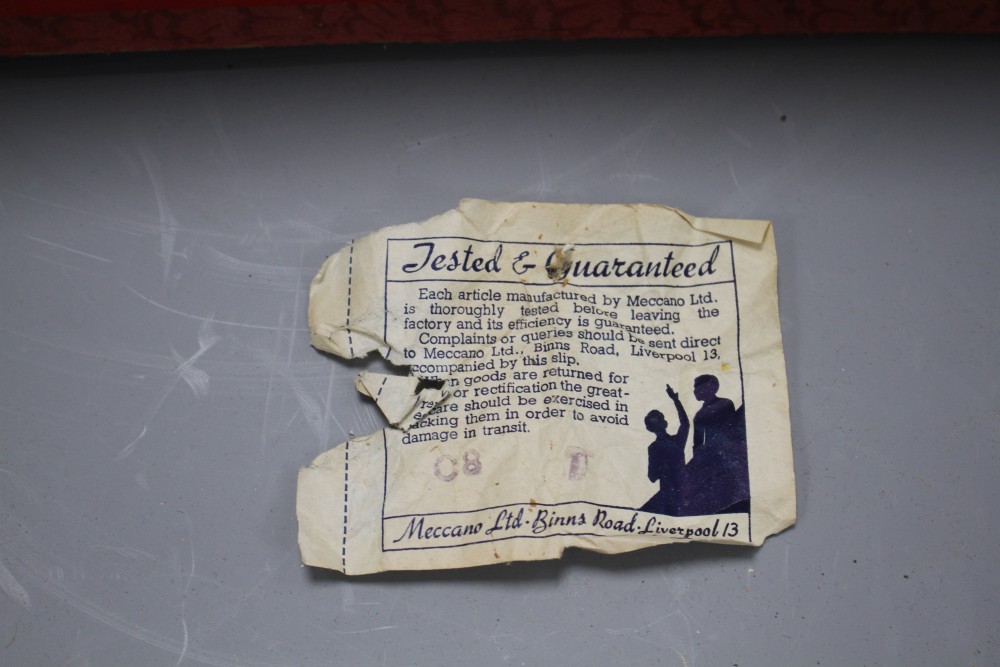 Tested & Guaranteed
Each article manufactured by Meccano Ltd.
is thoroughly tested before leaving the
factory and its efficiency is guaranteed.
Complaints or queries should be sent direct
to Meccano Ltd., Binns Road, Liverpool 13,
accompanied by this slip.
When goods are returned for
or rectification the great-
care should be exercised in
packing them in order to avoid
damage in transit.
C8 T
Meccano Ltd · Binns Road · Liverpool 13